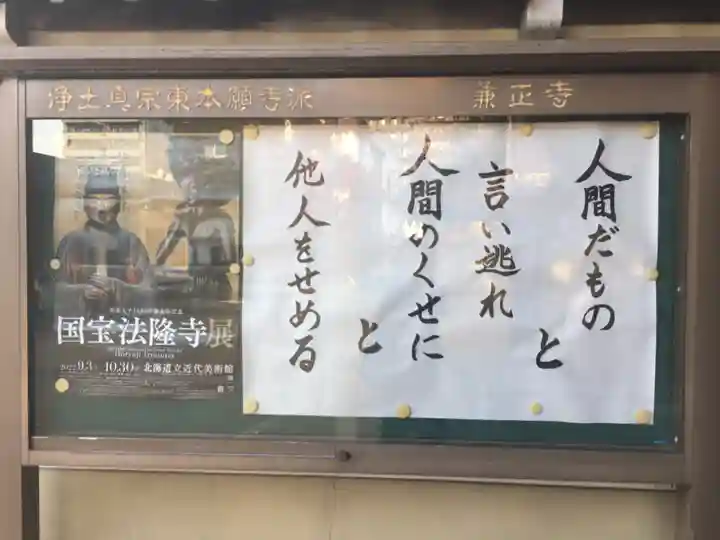 浄土真宗東本願寺派
兼正寺
人間だもの
と
言い逃れ
人間のくせに
と
他人をせめる
国宝法隆寺展
2022 9.3 10.30 北海道立近代美術館